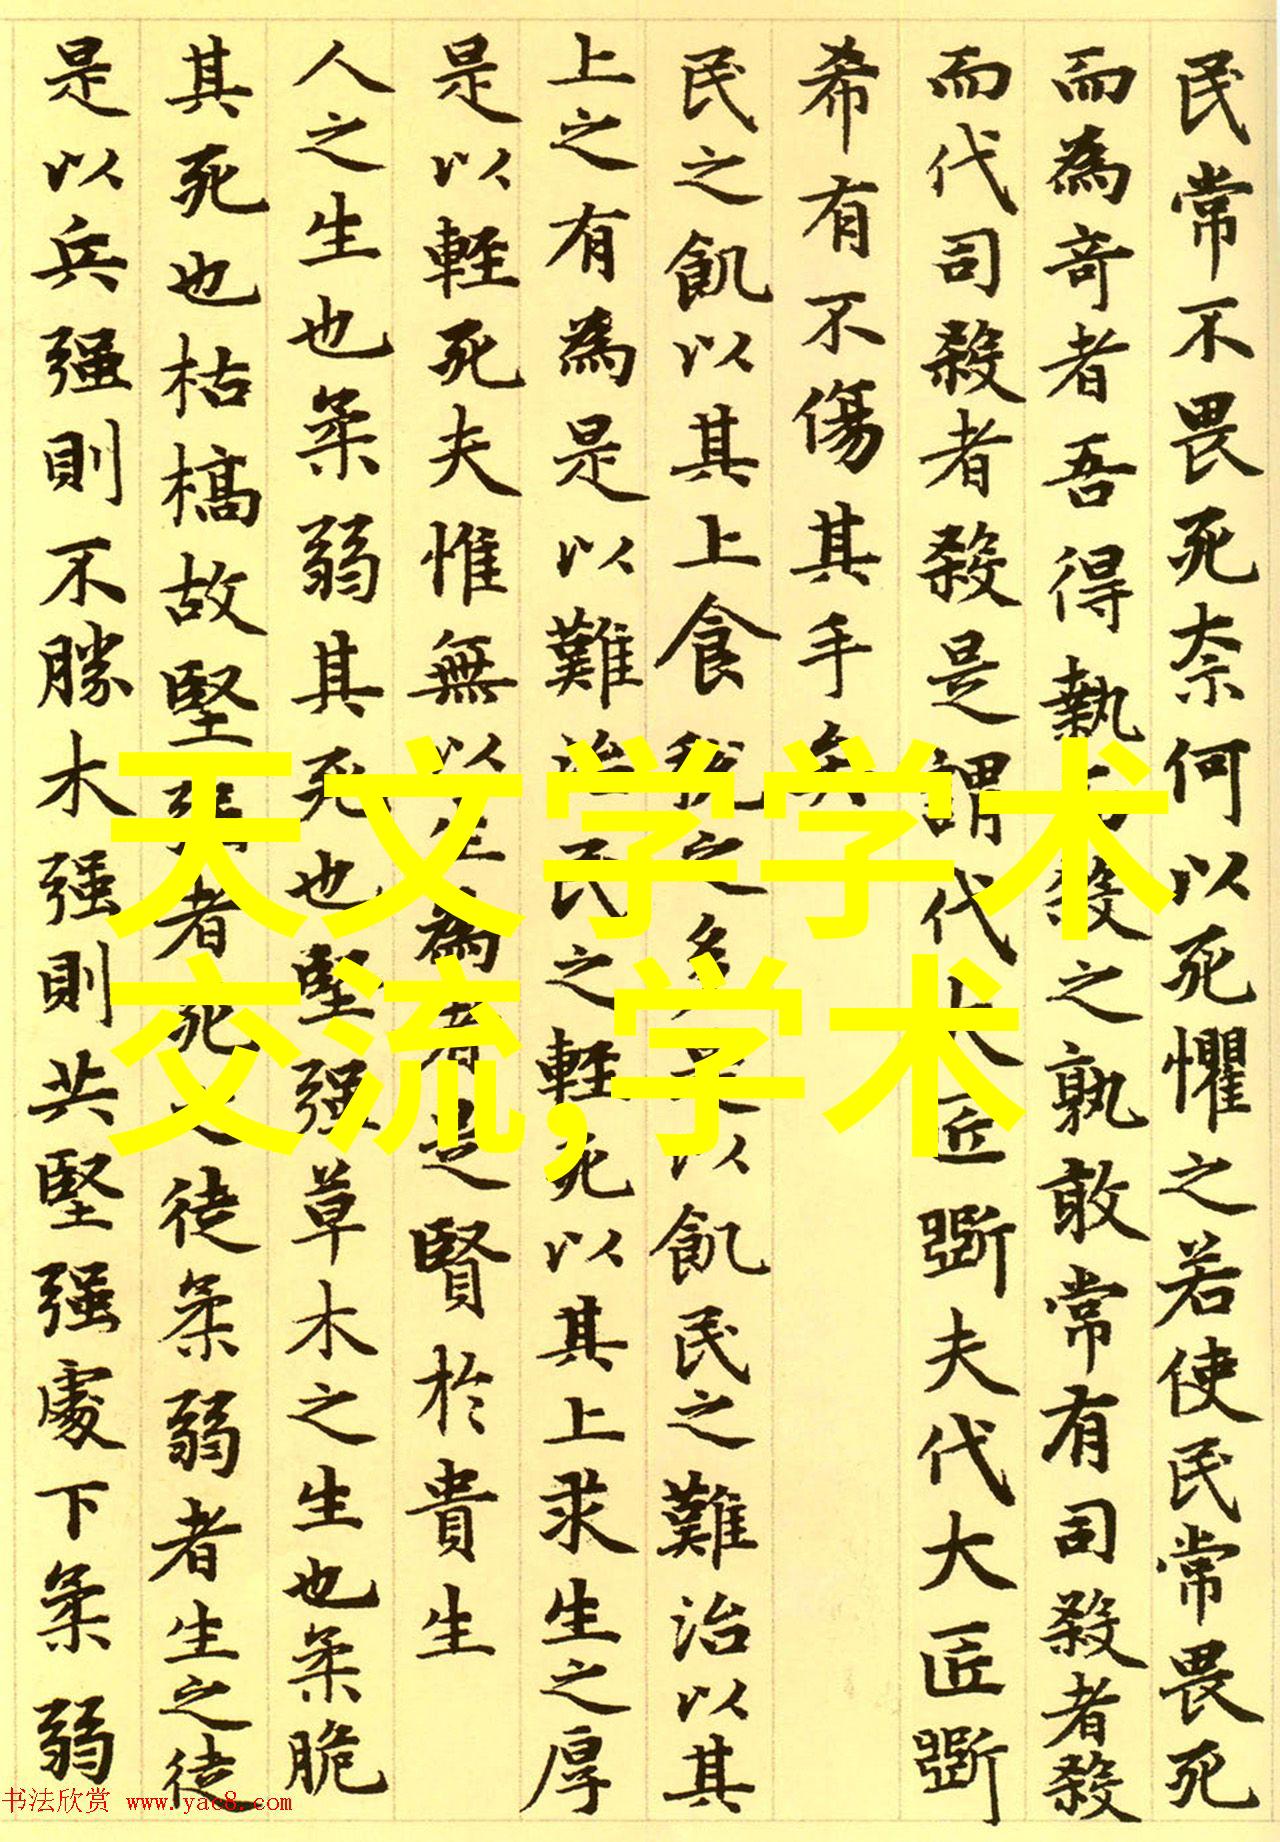 民常不畏死奈何以死懼之若使民常畏死
而為奇者吾得執而殺之孰敢常有司殺者殺
而代司殺者殺是謂代大匠斲夫代大匠斲
希有不傷其手矣
民之飢以其上食稅之多是以飢民之難治以其
上之有為是以難治民之輕死以其上求生之厚
是以輕死夫惟無以生為者是賢於貴生
人之生也柔弱其死也堅强草木之生也柔脆
其死也枯槁故堅强者死之徒柔弱者生之徒
是以兵强則不勝木强則共堅强處下柔弱
天文学学术
交流,学术
书法欣赏 www.yac8.com